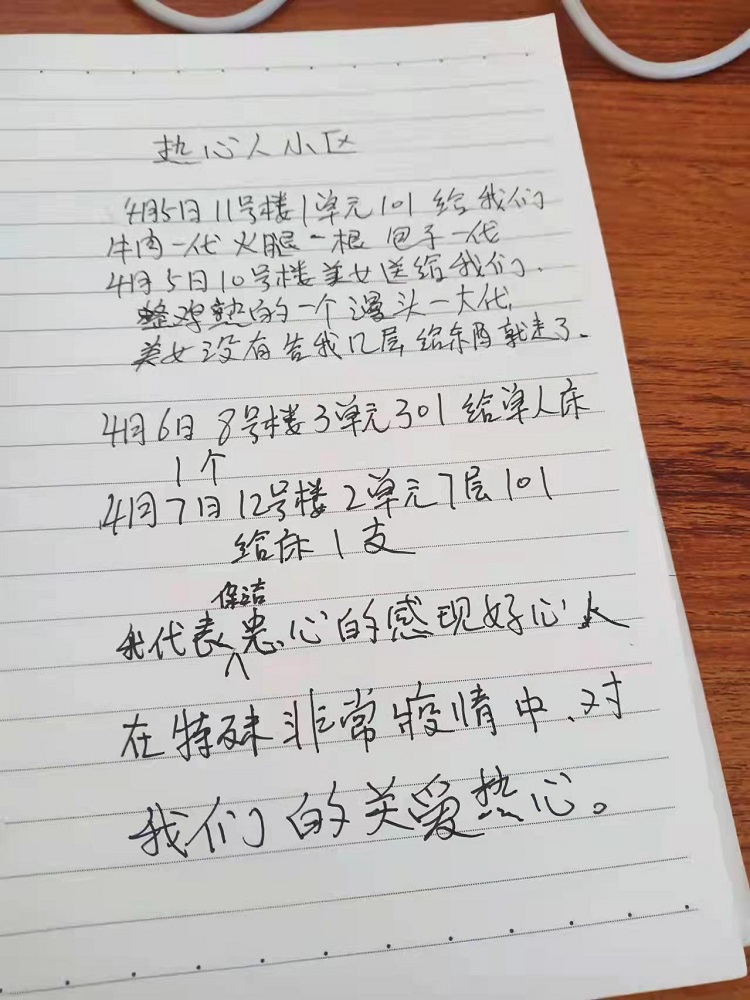 热心人小区
4月5日11号楼1单元101给我们
牛肉一代火腿一根包子一代
4月5日10号楼美女送给我们.
整鸡熟的一个馒头一大代,
美女没有告我几层给东西就走了.
4月6日8号楼3单元301给单人床
1个
4月7日12号楼2单元7层101
给床1支
保洁
我代表忠心的感现好心人
在特殊非常疫情中、对
我们的关爱热心。